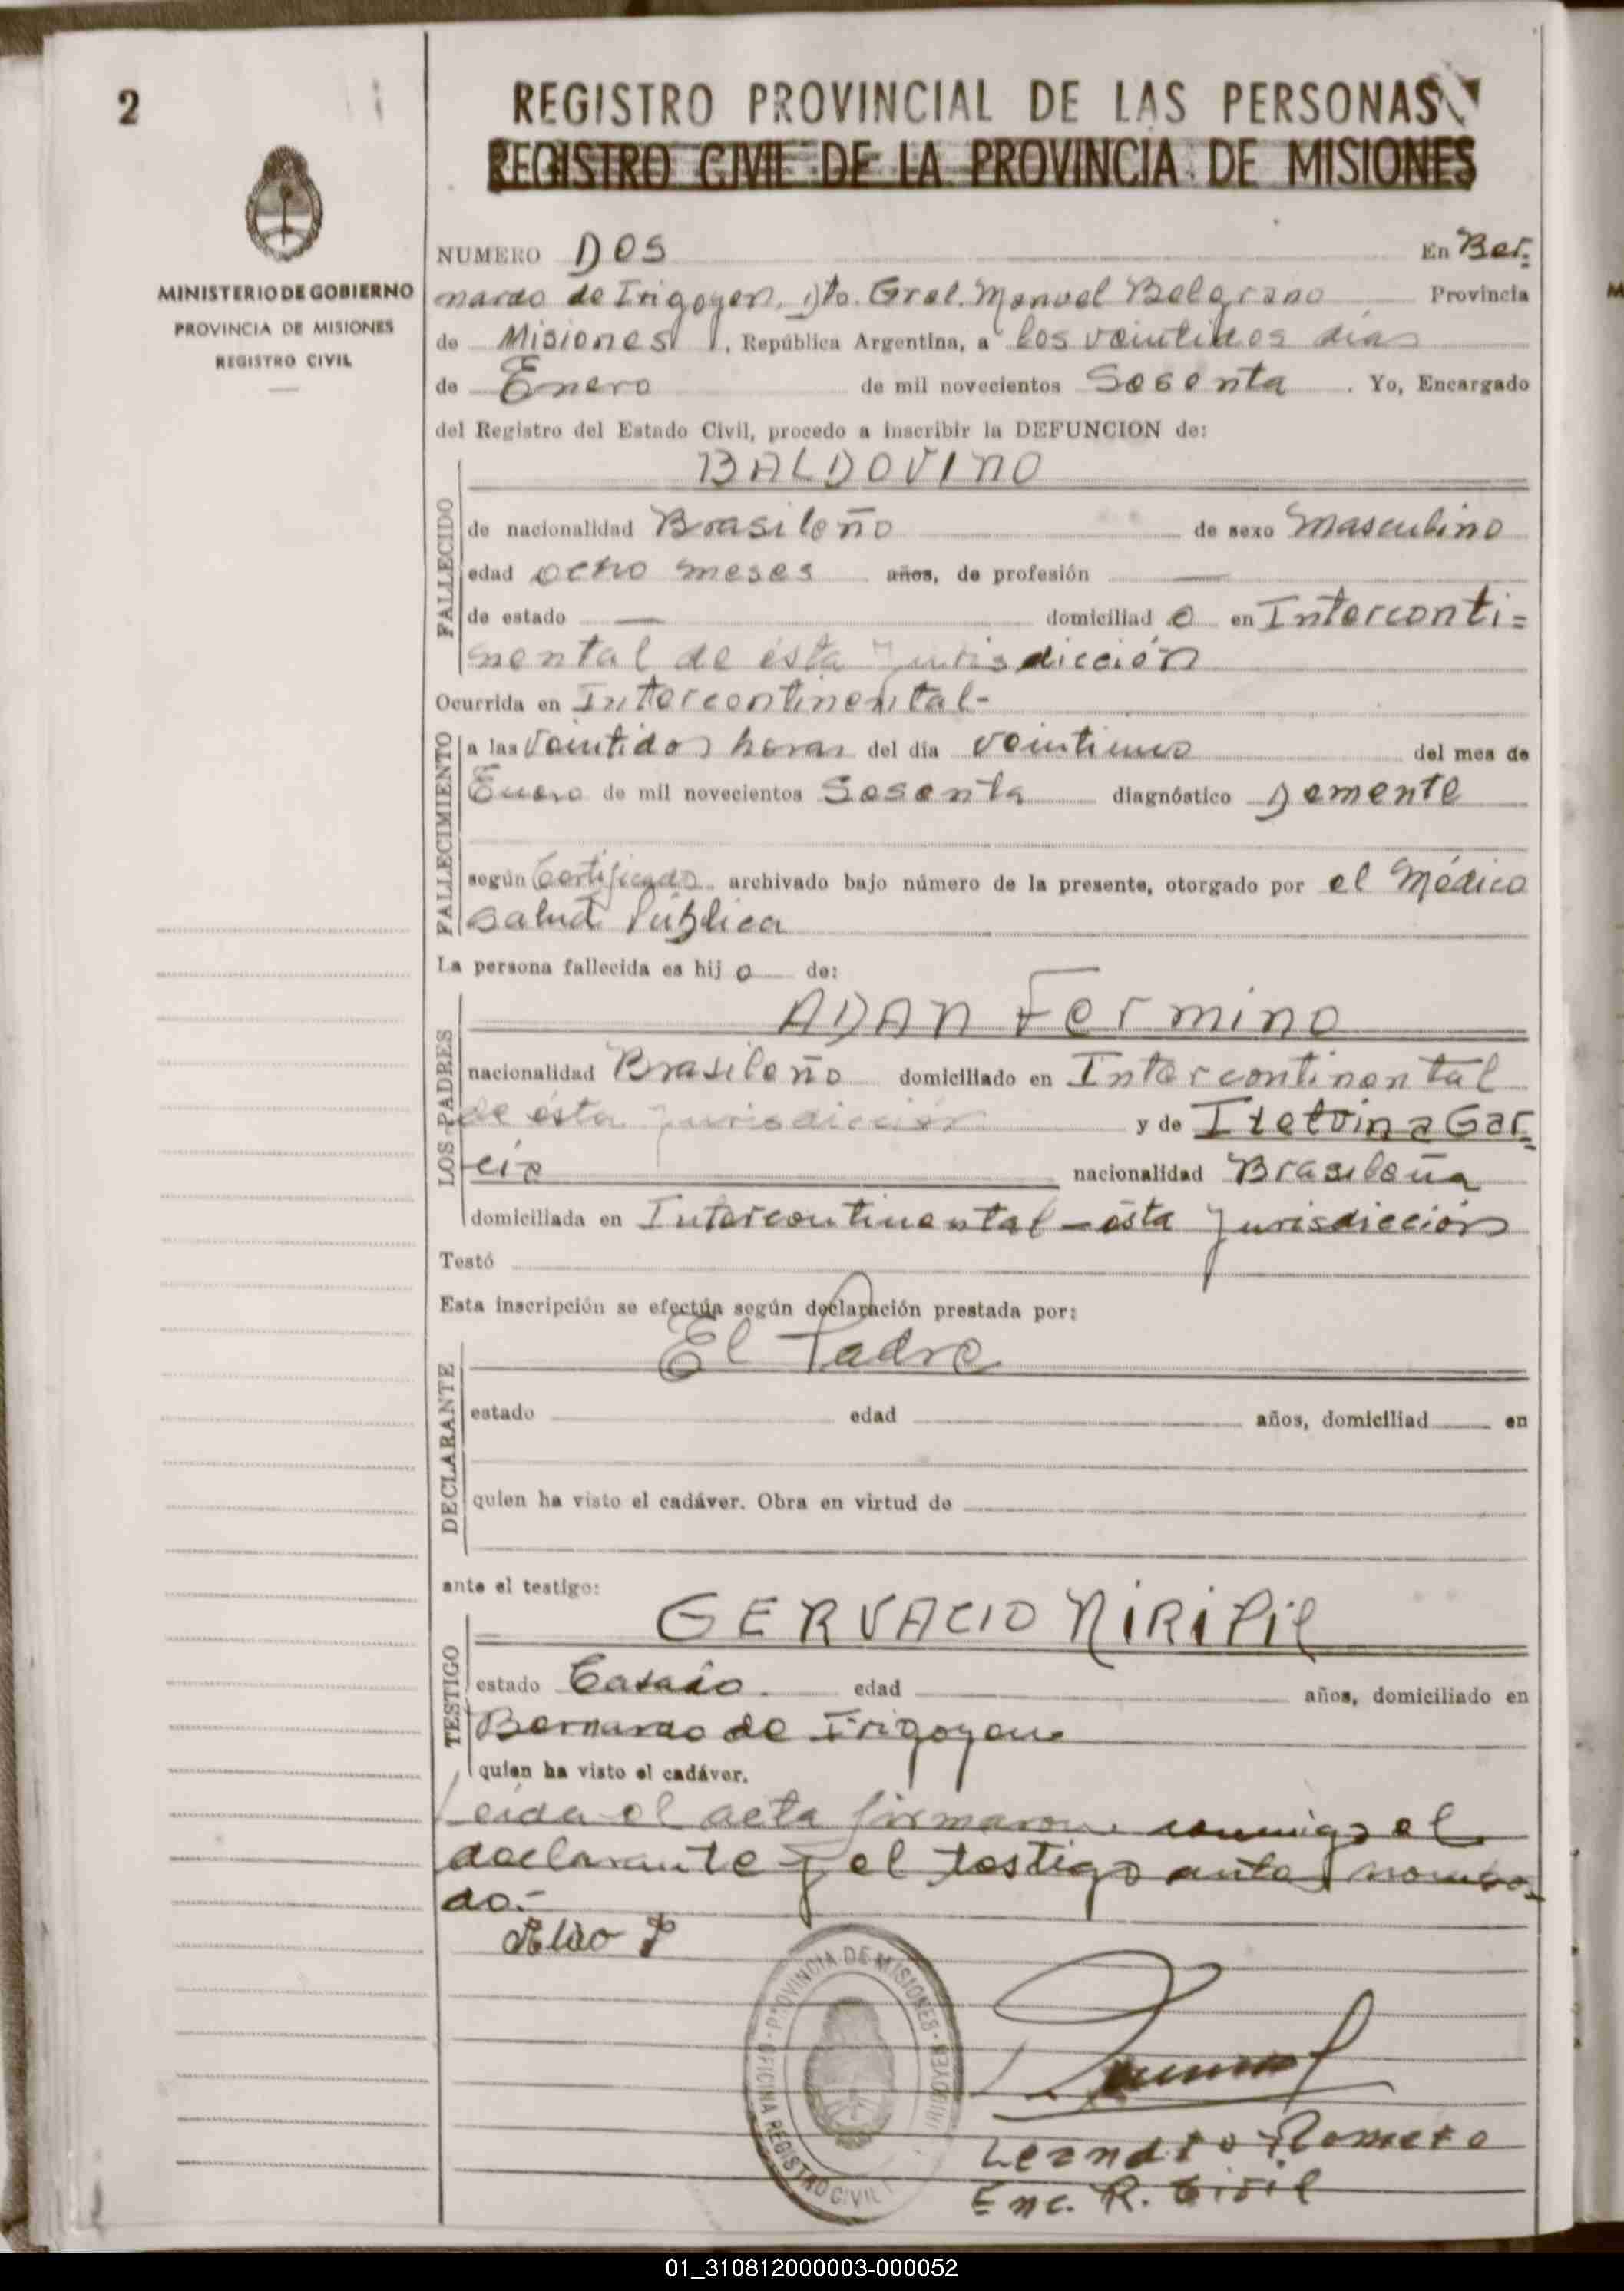 2
REGISTRO PROVINCIAL DE LAS PERSONAS
REGISTRO CIVIL DE LA PROVINCIA DE MISIONES
MINISTERIO DE GOBIERNO
PROVINCIA DE MISIONES
REGISTRO CIVIL
NUMERO DOS En Ber=
nardo de Irigoyen, Dto. Gral. Manuel Belgrano Provincia
de Misiones, República Argentina, a los veintidos días
de Enero de mil novecientos Sesenta. Yo, Encargado
del Registro del Estado Civil, procedo a inscribir la DEFUNCION de:
BALDOVINO
FALLECIDO
de nacionalidad Brasileño de sexo Masculino
edad ocho meses años, de profesión —
de estado — domiciliad o en Interconti=
nental de ésta Jurisdicción
Ocurrida en Intercontinental-
FALLECIMIENTO
a las veintidos horas del día veintiuno del mes de
Enero de mil novecientos Sesenta diagnóstico Demente
según Certificado archivado bajo número de la presente, otorgado por el Médico
Salud Pública
La persona fallecida es hij o de:
LOS PADRES
ADAN Fermino
nacionalidad Brasileño domiciliado en Intercontinental
de ésta jurisdicción y de Itelvina Gar=
cía nacionalidad Brasileña
domiciliada en Intercontinental - ésta Jurisdicción
Testó
Esta inscripción se efectúa según declaración prestada por:
El Padre
DECLARANTE
estado edad años, domiciliad en
quien ha visto el cadáver. Obra en virtud de
ante el testigo:
GERVACIO ÑIRIPIL
TESTIGO
estado Casado edad años, domiciliado en
Bernardo de Irigoyen
quien ha visto el cadáver.
Leída el acta firmaron conmigo el
declarante y el testigo ante nombra-
do.-
PROVINCIA DE MISIONES - IRIGOYEN
OFICINA REGISTRO CIVIL
Leandro Romero
Enc. R. Civil
01_310812000003-000052